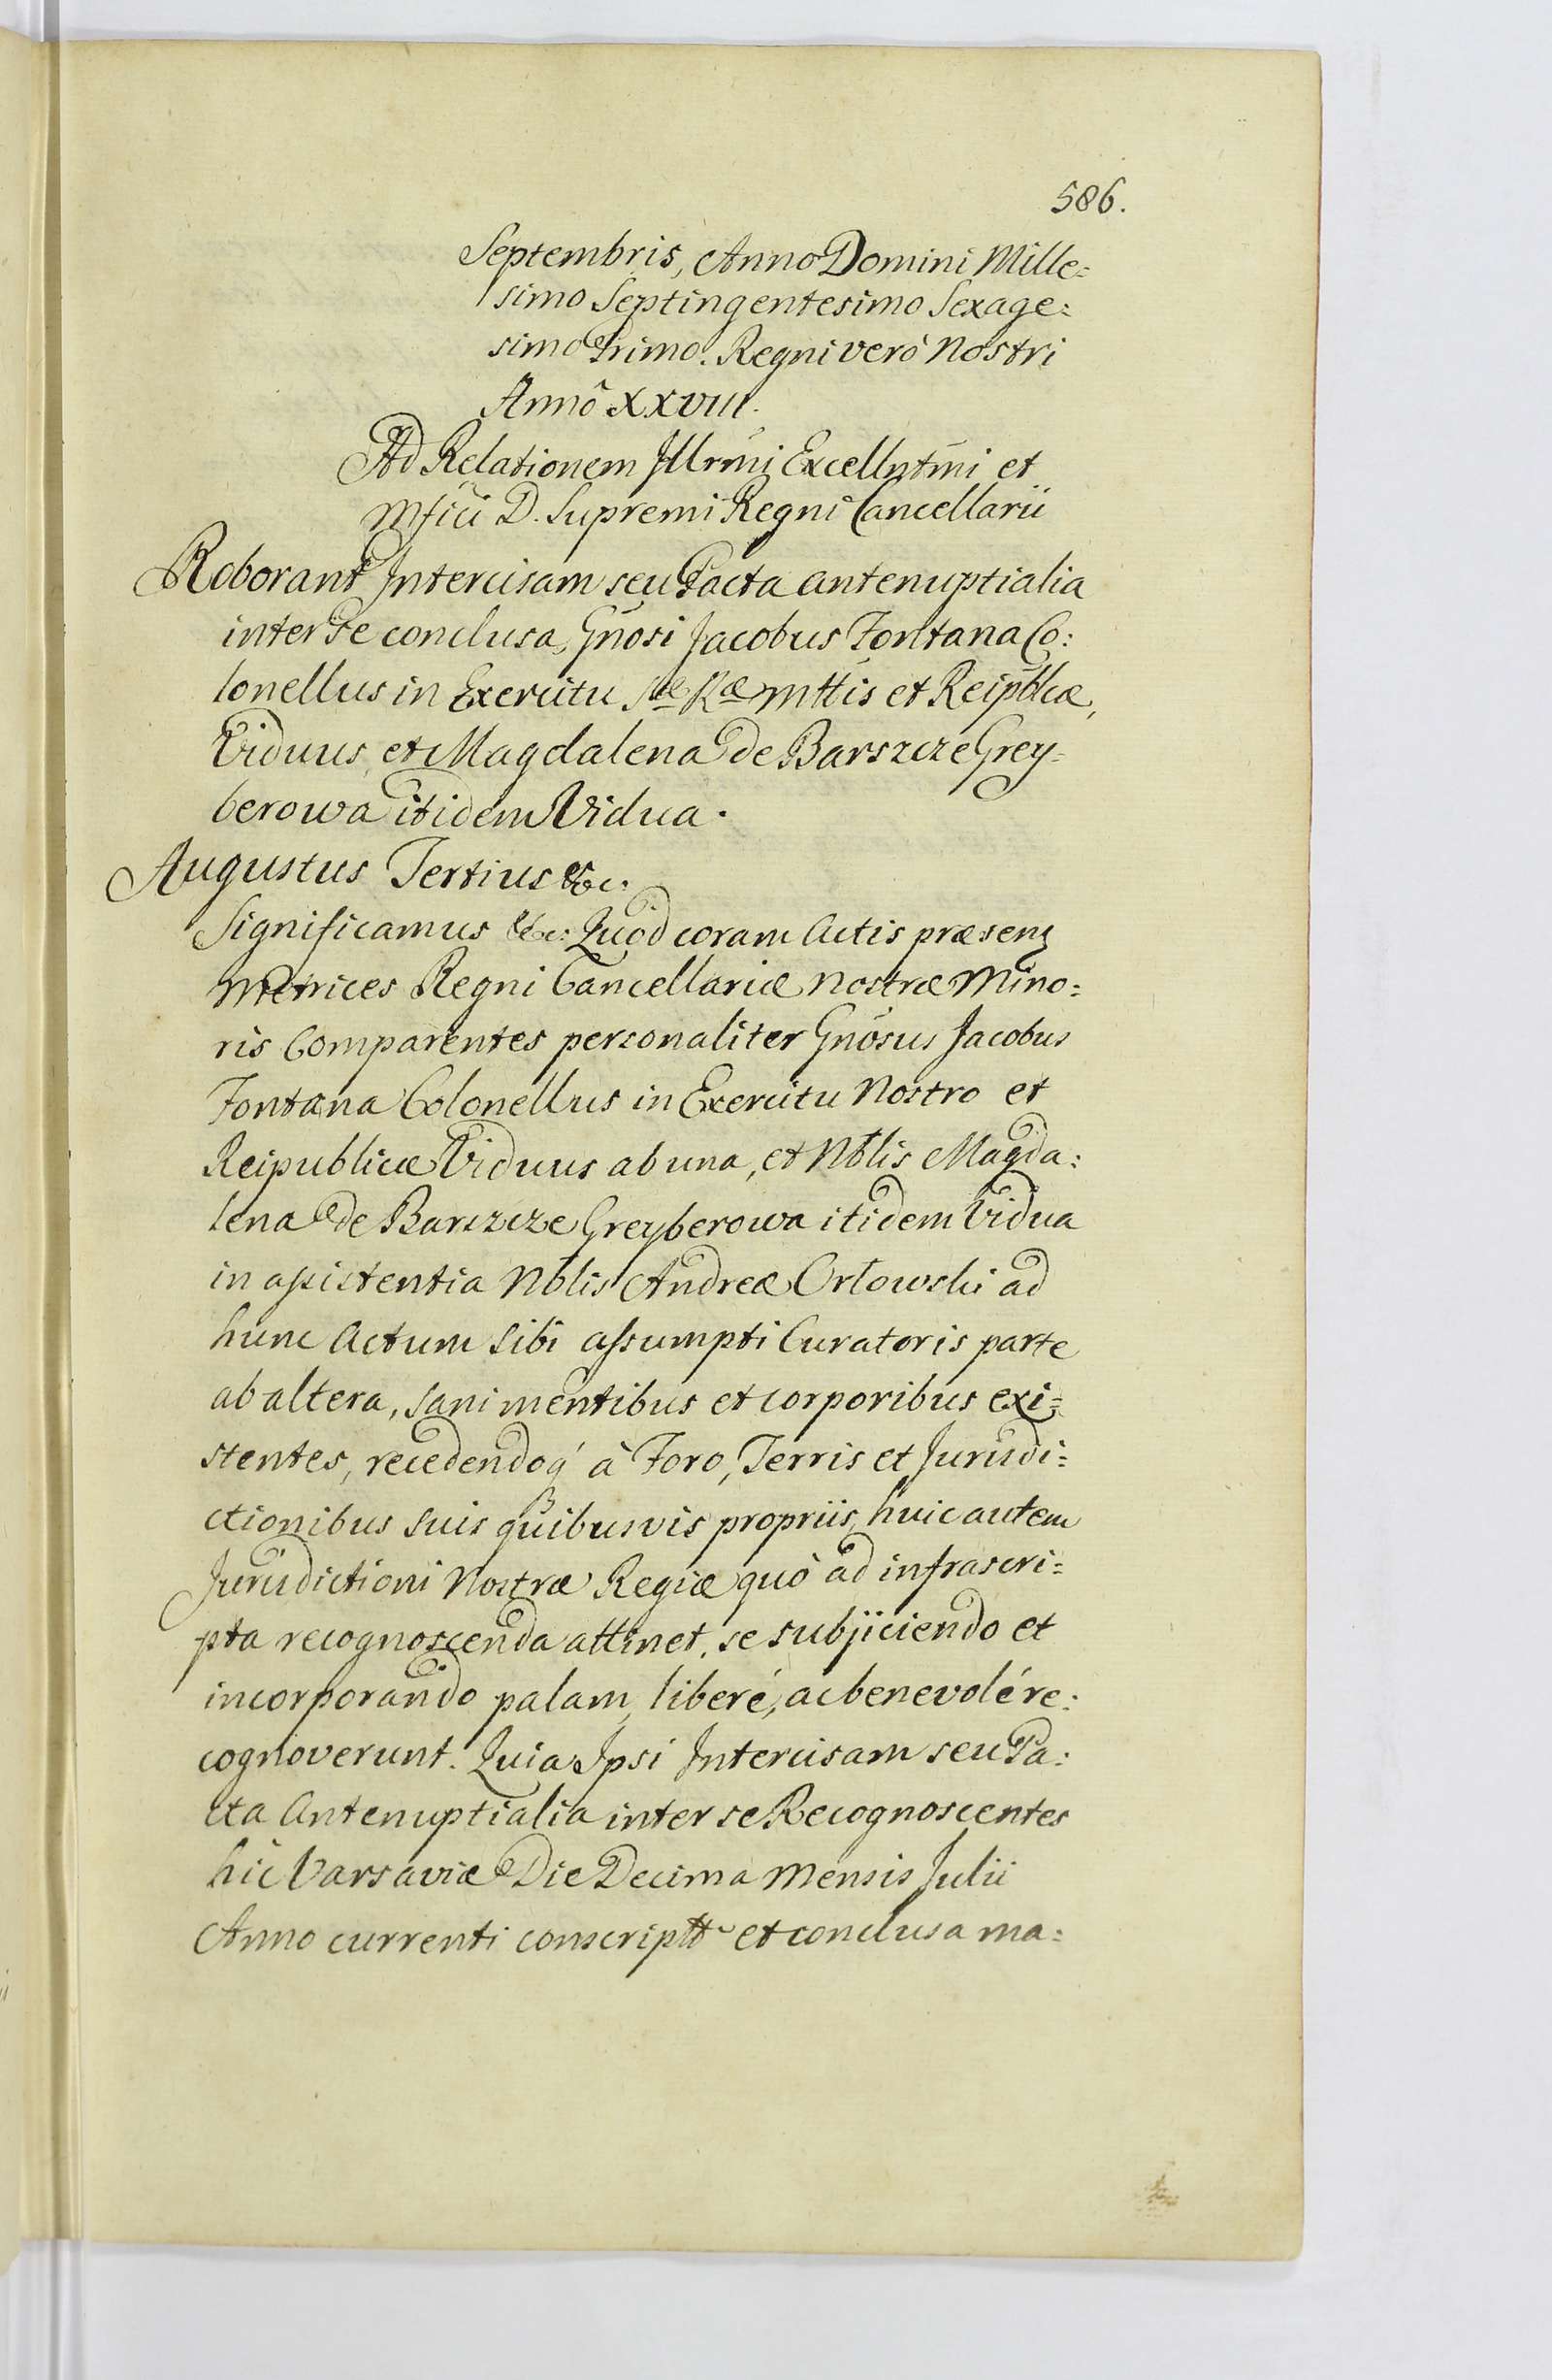 586.
Septembris, Anno Domini Mille=
simo Septingentesimo Sexage=
simo Primo. Regni verò Nostri
Annô XXVIII.
Ad Relationem Jllrmi Excellntmi et
Mfici D. Supremi Regni Cancellarii
Roborant Intercisam seu Pacta antenuptialia
inter se conclusa, Gnosi Jacobus Fontana Co:
lonellus in Exercitu Sæ Ræ Mttis et Reipblicæ,
Viduus, et Magdalena de Barszcze Grey=
berowa itidem Vidua.
Augustus Tertius &c.
Significamus &c: Quod coram Actis præsens
Metrices Regni Cancellariæ Nostræ Mino:
ris Comparentes personaliter Gnosus Jacobus
Fontana Colonellus in Exercitu Nostro et
Reipublicæ Viduus ab una, et Nblis Magda:
lena de Barszcze Greyberowa itidem Vidua
in assistentia Nblis Andreæ Orłowski ad
hunc Actum sibi assumpti Curatoris parte
ab altera, sani mentibus et corporibus exi=
stentes, recedendoq́ à Foro, Terris et Jurisdi=
ctionibus suis quibusvis propriis, huic autem
Jurisdictioni Nostræ Regiæ quò ad infrascri=
pta recognoscenda attinet, se subjiciendo et
incorporando palam, liberé, ac benevolé re:
cognoverunt. Quia Ipsi Intercisam seu Pa:
cta Antenuptialia inter se Recognoscentes
hic Varsaviæ Die Decima Mensis Julii
Anno currenti et conclusa ma: